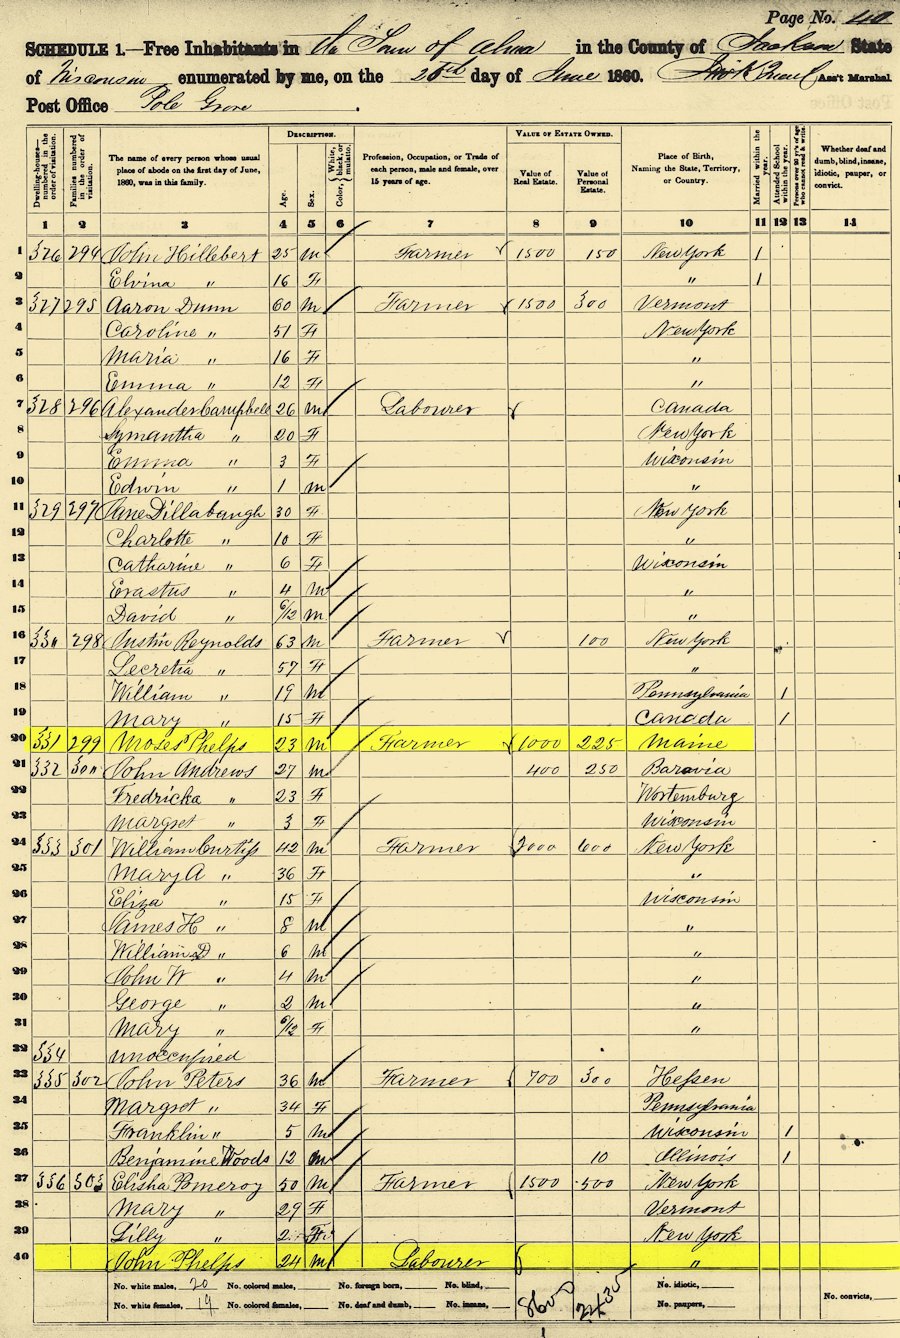 Page No. 40
SCHEDULE 1.—Free Inhabitants in the Town of Alma in the County of Jackson State
of Wisconsin enumerated by me, on the 20th day of June 1860. Ass't Marshal
Post Office Pole Grove.
Dwelling-houses—numbered in the order of visitation. Families numbered in the order of visitation. The name of every person whose usual place of abode on the first day of June, 1860, was in this family. DESCRIPTION. Age. Sex. Color, White, black, or mulatto. Profession, Occupation, or Trade of each person, male and female, over 15 years of age. VALUE OF ESTATE OWNED. Value of Real Estate. Value of Personal Estate. Place of Birth, Naming the State, Territory, or Country. Married within the year. Attended School within the year. Persons over 20 y'rs of age who cannot read & write. Whether deaf and dumb, blind, insane, idiotic, pauper, or convict.
1 2 3 4 5 6 7 8 9 10 11 12 13 14
1 326 294 John Hillebert 25 M Farmer 1500 150 New York 1
2 Elvina " 16 F " 1
3 327 295 Aaron Dunn 60 M Farmer 1500 300 Vermont
4 Caroline " 51 F New York
5 Maria " 16 F "
6 Emma " 12 F "
7 328 296 Alexander Campbell 26 M Labourer Canada
8 Symantha " 20 F New York
9 Emma " 3 F Wisconsin
10 Edwin " 1 M "
11 329 297 Jane Dillabaugh 30 F New York
12 Charlotte " 10 F "
13 Catharine " 6 F Wisconsin
14 Erastus " 4 M "
15 David " 6/12 M "
16 330 298 Justin Reynolds 63 M Farmer 100 New York
17 Lecretia " 57 F "
18 William " 19 M Pennsylvania 1
19 Mary " 15 F Canada 1
20 331 299 Moses Phelps 23 M Farmer 1000 225 Maine
21 332 300 John Andrews 27 M 400 250 Baravia
22 Fredricka " 23 F Wortemburg
23 Margret " 3 F Wisconsin
24 333 301 William Curtiss 42 M Farmer 2000 600 New York
25 Mary A " 36 F "
26 Eliza " 15 F Wisconsin
27 James H " 8 M "
28 William D " 6 M "
29 John W " 4 M "
30 George " 2 M "
31 Mary " 6/12 F "
32 334 unoccupied
33 335 302 John Peters 36 M Farmer 700 300 Hessen
34 Margret " 34 F Pennsylvania
35 Franklin " 5 M Wisconsin 1
36 Benjamine Woods 12 M 10 Illinois 1
37 336 303 Elisha Pomeroy 50 M Farmer 1500 500 New York
38 Mary " 29 F Vermont
39 Lilly " 2 F New York
40 John Phelps 24 M Labourer "
No. white males, 20 No. colored males, No. foreign born, No. blind, 8600 2435 No. idiotic,
No. white females, 19 No. colored females, No. deaf and dumb, No. insane, No. paupers, No. convicts,